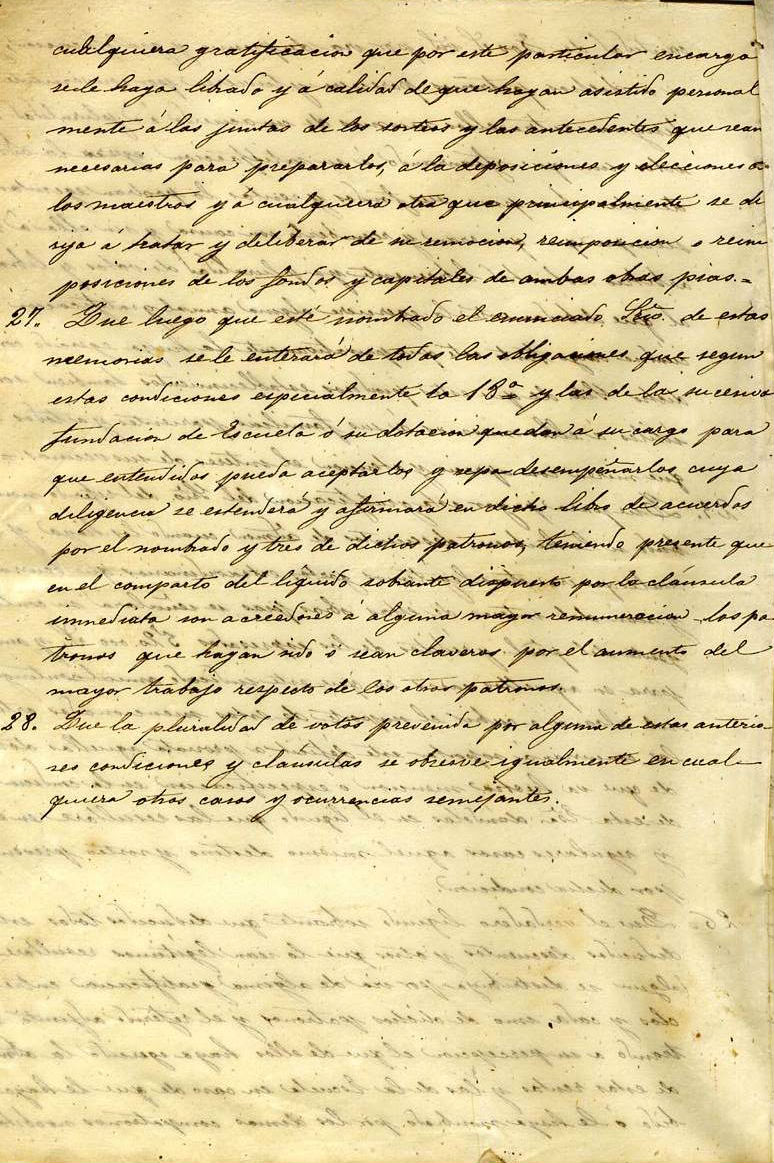 cualquiera gratificacion que por este particular encargo
sele haya librado y á calidad de que hayan asistido personal
mente á las juntas de los sorteos y las antecedentes que sean
necesarias para prepararlos, á la deposiciones y elecciones de
los maestros y á cualquiera otra que principalmente se di
rija á tratar y deliberar de su remocion, reimposicion o reim
posiciones de los fondos y capitales de ambas obras pias.=
27. Que luego que esté nombrado el enunciado Srio. de estas
memorias se le enterará de todas las obligaciones que segun
estas condiciones especialmente la 18ª y las de la sucesiva
fundacion de Escuela ó su dotacion quedan á su cargo para
que entendidos pueda aceptarlos y sepa desempeñarlos cuya
diligencia se estenderá y afirmará en dicho libro de acuerdos
por el nombrado y tres de dichos patronos, teniendo presente que
en el comparto del líquido sobrante dispuesto por la cláusula
inmediata son acreedores á alguna mayor remuneracion los pa-
tronos que hayan sido ó sean claveros por el aumento del
mayor trabajo respecto de los otros patronos.
28. Que la pluralidad de votos prevenida por alguna de estas anterio-
res condiciones y cláusulas se observe igualmente en cual-
quiera otros casos y ocurrencias semejantes.